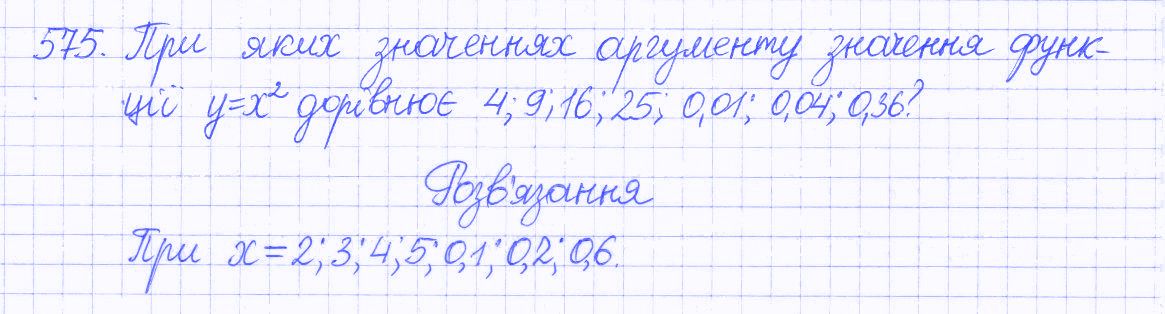 575. При яких значеннях аргументу значення функ-
ції y=x² дорівнює 4; 9; 16; 25; 0,01; 0,04; 0,36?
Розв'язання
При x=2; 3; 4; 5; 0,1; 0,2; 0,6.